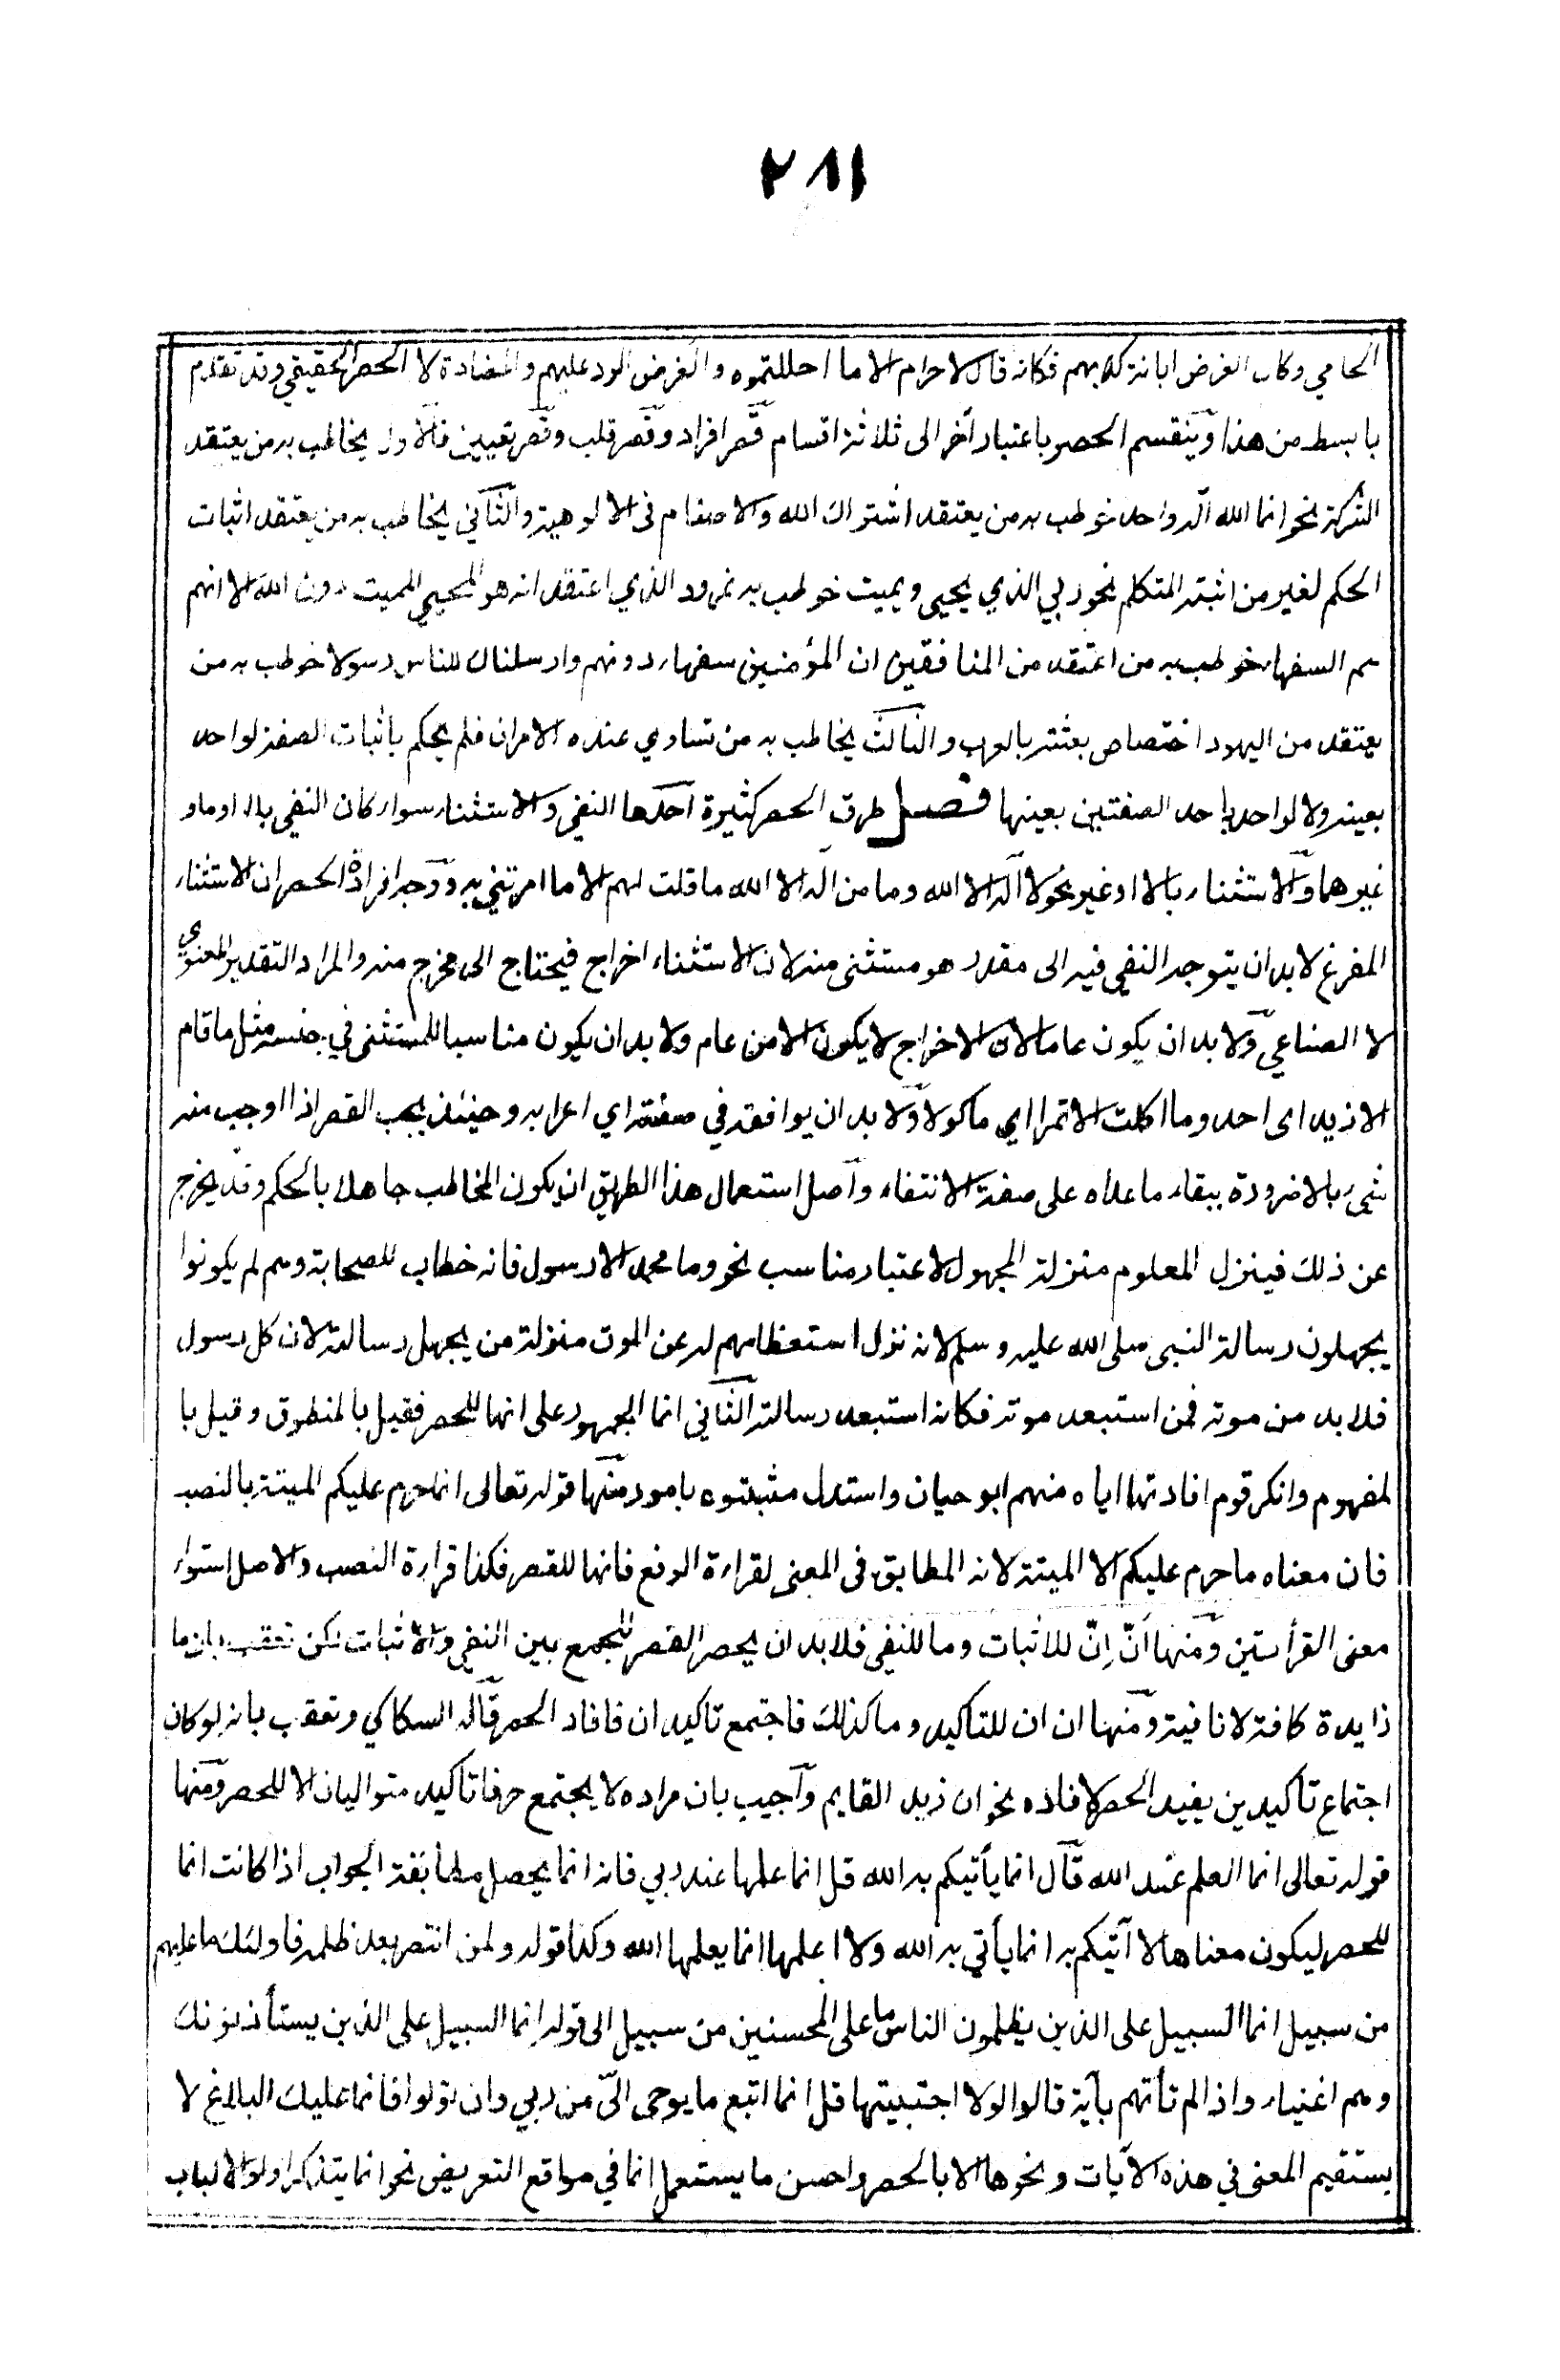 ٢٨١
الحامي وكان الغرض ابانة كذبهم فكانه قال لا حرام الا ما احللتموه والغرض الرد عليهم والمضادة لا الحصر الحقيقي وقد تقدم
بابسط من هذا وينقسم الحصر باعتبار آخر الى ثلاثة اقسام قصر افراد وقصر قلب وقصر تعيين فالاول يخاطب به من يعتقد
الشركة نحو انما الله اله واحد خوطب به من يعتقد اشتراك الله والاصنام في الالوهية والثاني يخاطب به من يعتقد اثبات
الحكم لغير من اثبته المتكلم نحو ربي الذي يحيى ويميت خوطب به نمرود الذي اعتقد انه هو المحيي المميت دون الله الا انهم
هم السفهاء خوطب به من اعتقد من المنافقين ان المؤمنين سفهاء دونهم وارسلناك للناس رسولا خوطب به من
يعتقد من اليهود اختصاص بعثته بالعرب والثالث يخاطب به من تساوي عنده الامران فلم يحكم باثبات الصفة لواحد
بعينه ولا لواحد باحد الصفتين بعينها فصل طرق الحصر كثيرة احدها النفي والاستثناء سواء كان النفي بلا او ما و
غيرهما والاستثناء بالا او غير نحو لا اله الا الله وما من اله الا الله ما قلت لهم الا ما امرتني به ووجه افادة الحصر ان الاستثناء
المفرغ لا بد ان يتوجه النفي فيه الى مقدر هو مستثنى منه لان الاستثناء اخراج فيحتاج الى مخرج منه والمراد التقدير المعنوي
لا الصناعي ولا بد ان يكون عاما لان الاخراج لا يكون الا من عام ولا بد ان يكون مناسبا للمستثنى في جنسه مثل ما قام
الا زيد اى احد وما اكلت الا تمرا اي ماكولا ولا بد ان يوافقه في صفته اي اعرابه وحينئذ يجب القصر اذا اوجب منه
شيء بالا ضرورة ببقاء ما عداه على صفة الانتفاء واصل استعمال هذا الطريق ان يكون المخاطب جاهلا بالحكم وقد يخرج
عن ذلك فينزل المعلوم منزلة المجهول لاعتبار مناسب نحو وما محمد الا رسول فانه خطاب للصحابة وهم لم يكونوا
يجهلون رسالة النبي صلى الله عليه وسلم لانه نزل استعظامهم له عن الموت منزلة من يجهل رسالته لان كل رسول
فلا بد من موته فمن استبعد موته فكانه استبعد رسالته الثاني انما الجمهور على انها للحصر فقيل بالمنطوق وقيل با
لمفهوم وانكر قوم افادتها اياه منهم ابو حيان واستدل مثبتوه بامور منها قوله تعالى انما حرم عليكم الميتة بالنصب
فان معناه ما حرم عليكم الا الميتة لانه المطابق في المعنى لقراءة الرفع فانها للقصر فكذا قراءة النصب والاصل استواء
معنى القرأستين ومنها أنّ إنّ للاثبات وما للنفي فلا بد ان يحصر القصر للجمع بين النفي والاثبات لكن تعقب بان ما
زايدة كافة لا نافية ومنها ان ان للتاكيد وما كذلك فاجتمع تاكيد ان فافاد الحصر قاله السكاكي وتعقب بانه لو كان
اجتماع تأكيدين يفيد الحصر لافاده نحو ان زيد القايم وأجيب بان مراده لا يجتمع حرفا تاكيد متواليان الا للحصر ومنها
قوله تعالى انما العلم عند الله قال انما يأتيكم به الله قل انما علمها عند ربي فانه انما يحصل مطابقة الجواب اذا كانت انما
للحصر ليكون معناها لا آتيكم به انما يأتي به الله ولا اعلمها انما يعلمها الله وكذا قوله ولمن انتصر بعد ظلمه فاولئك ما عليهم
من سبيل انما السبيل على الذين يظلمون الناس ما على المحسنين من سبيل الى قوله انما السبيل على الذين يستأذنونك
وهم اغنياء واذا لم تأتهم بآية قالوا لولا اجتبيتها قل انما اتبع ما يوحى الىّ من ربي وان تولوا فانما عليك البلاغ لا
يستقيم المعنى في هذه الآيات ونحوها الا بالحصر واحسن ما يستعمل انما في مواقع التعريض نحو انما يتذكر اولوا الالباب